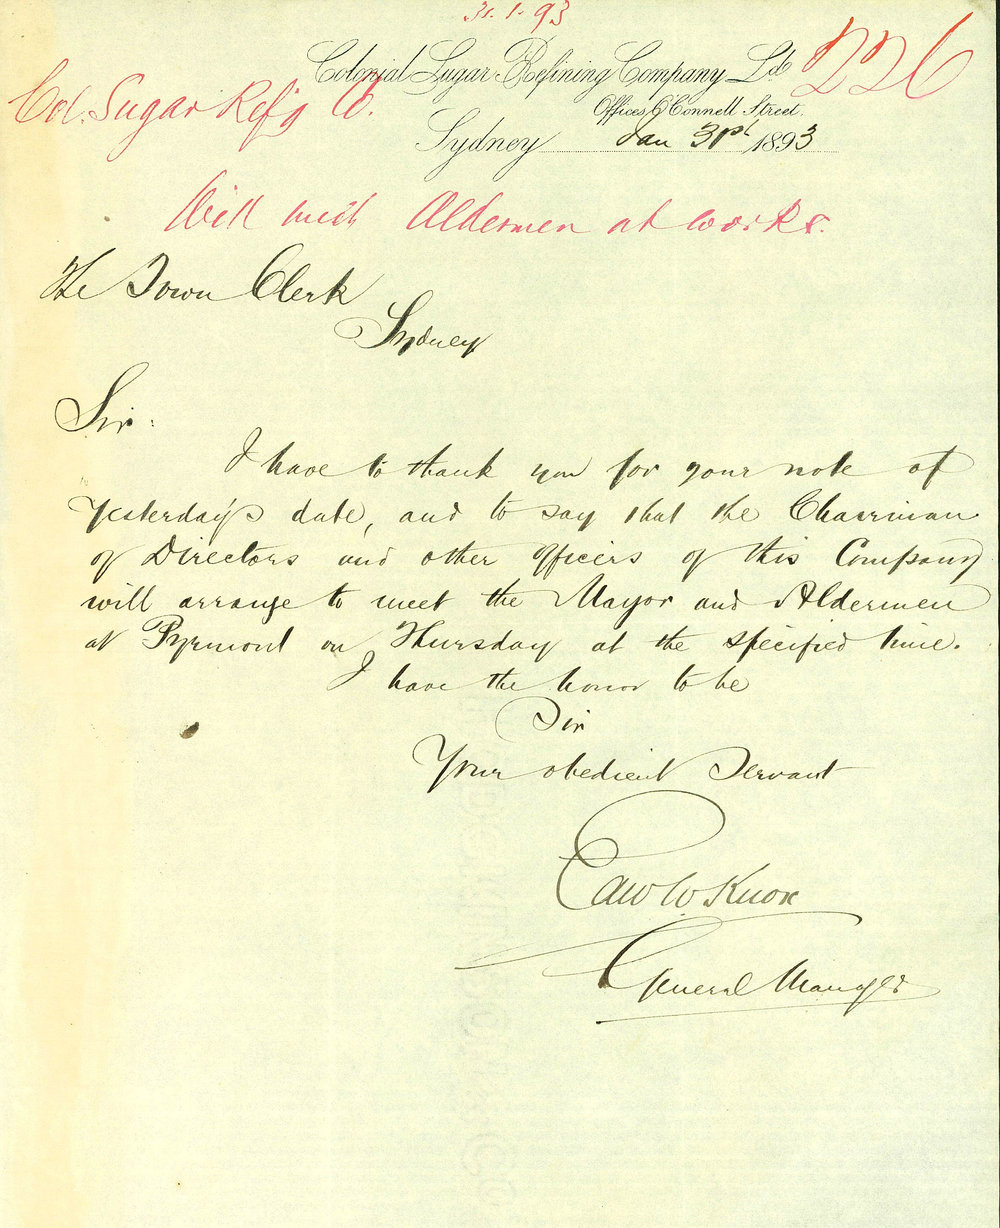 31.1.93
226
Colonial Sugar Refining Company Ltd
Col. Sugar Ref'g Co.
Offices O'Connell Street.
Sydney Jan 31st 1893
Will meet Aldermen at works.
The Town Clerk
Sydney
Sir.
I have to thank you for your note of
yesterday's date, and to say that the Chairman
of Directors and other officers of this Company
will arrange to meet the Mayor and Aldermen
at Pyrmont on Thursday at the specified time.
I have the honor to be
Sir
Your obedient Servant
Edw W Knox
General Manager